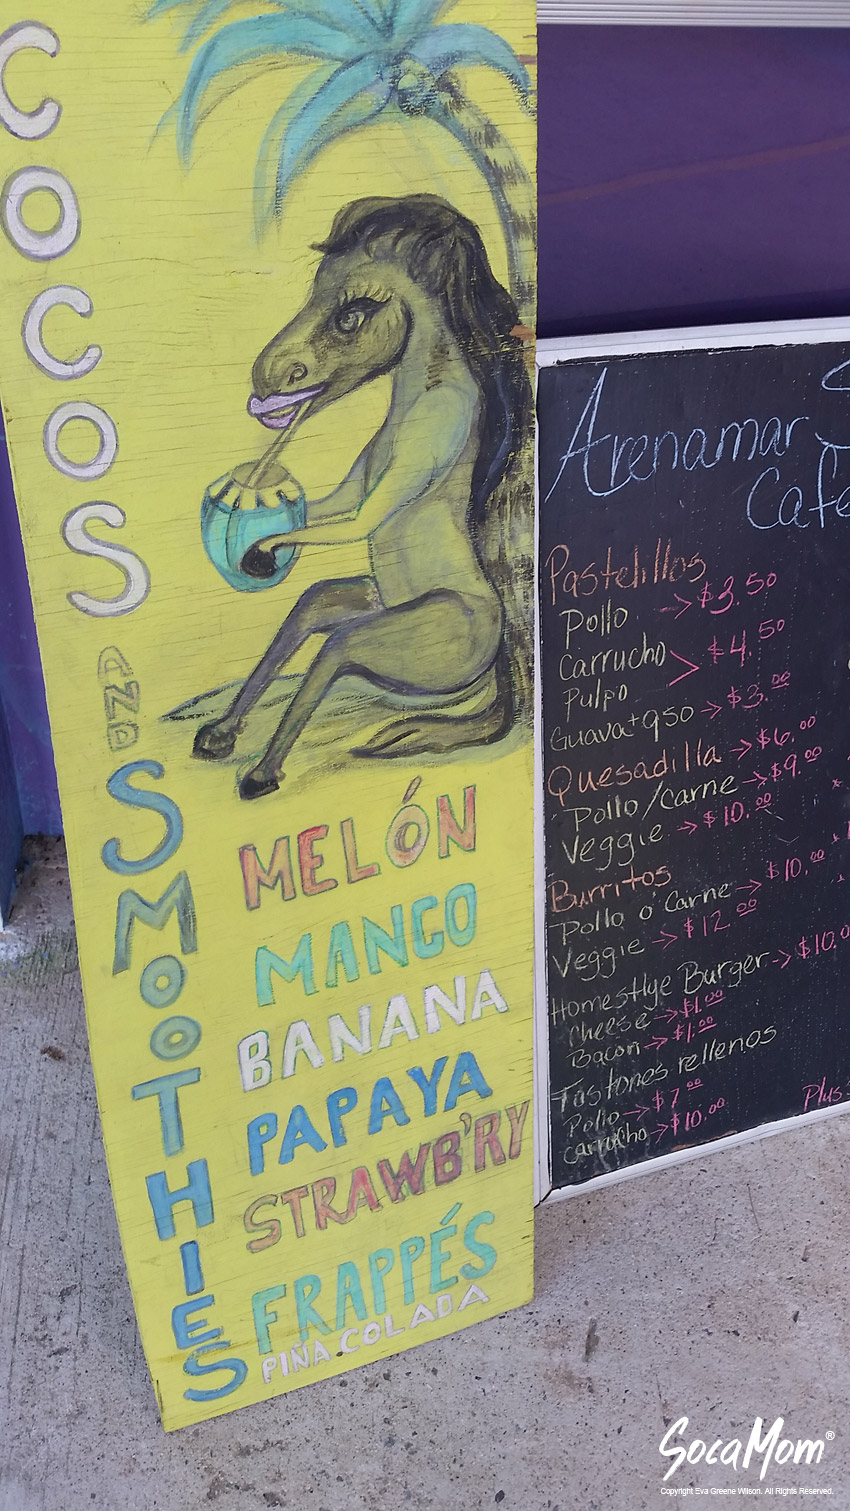 COCOS
AND
SMOOTHIES
MELÓN
MANGO
BANANA
PAPAYA
STRAWB'RY
FRAPPÉS
PIÑA COLADA
Arenamar
Café
Pastelillos
Pollo → $3.50
Carrucho
Pulpo > $4.50
Guava + qso → $3.00
Quesadilla → $6.00
Pollo/Carne → $9.00
Veggie → $10.00
Burritos
Pollo o' Carne → $10.00
Veggie → $12.00
Homestlye Burger → $10.0
Cheese → $1.00
Bacon → $1.00
Tostones rellenos
Pollo → $7.00
carrucho → $10.00
Plus
SocaMom®
Copyright Eva Greene Wilson. All Rights Reserved.